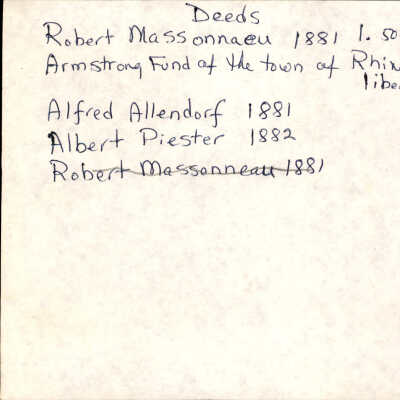 Deeds
Robert Massonnaeu 1881 1.50
Armstrong Fund of the town of Rhin
libe
Alfred Allendorf 1881
Albert Piester 1882
Robert Massonneau 1881